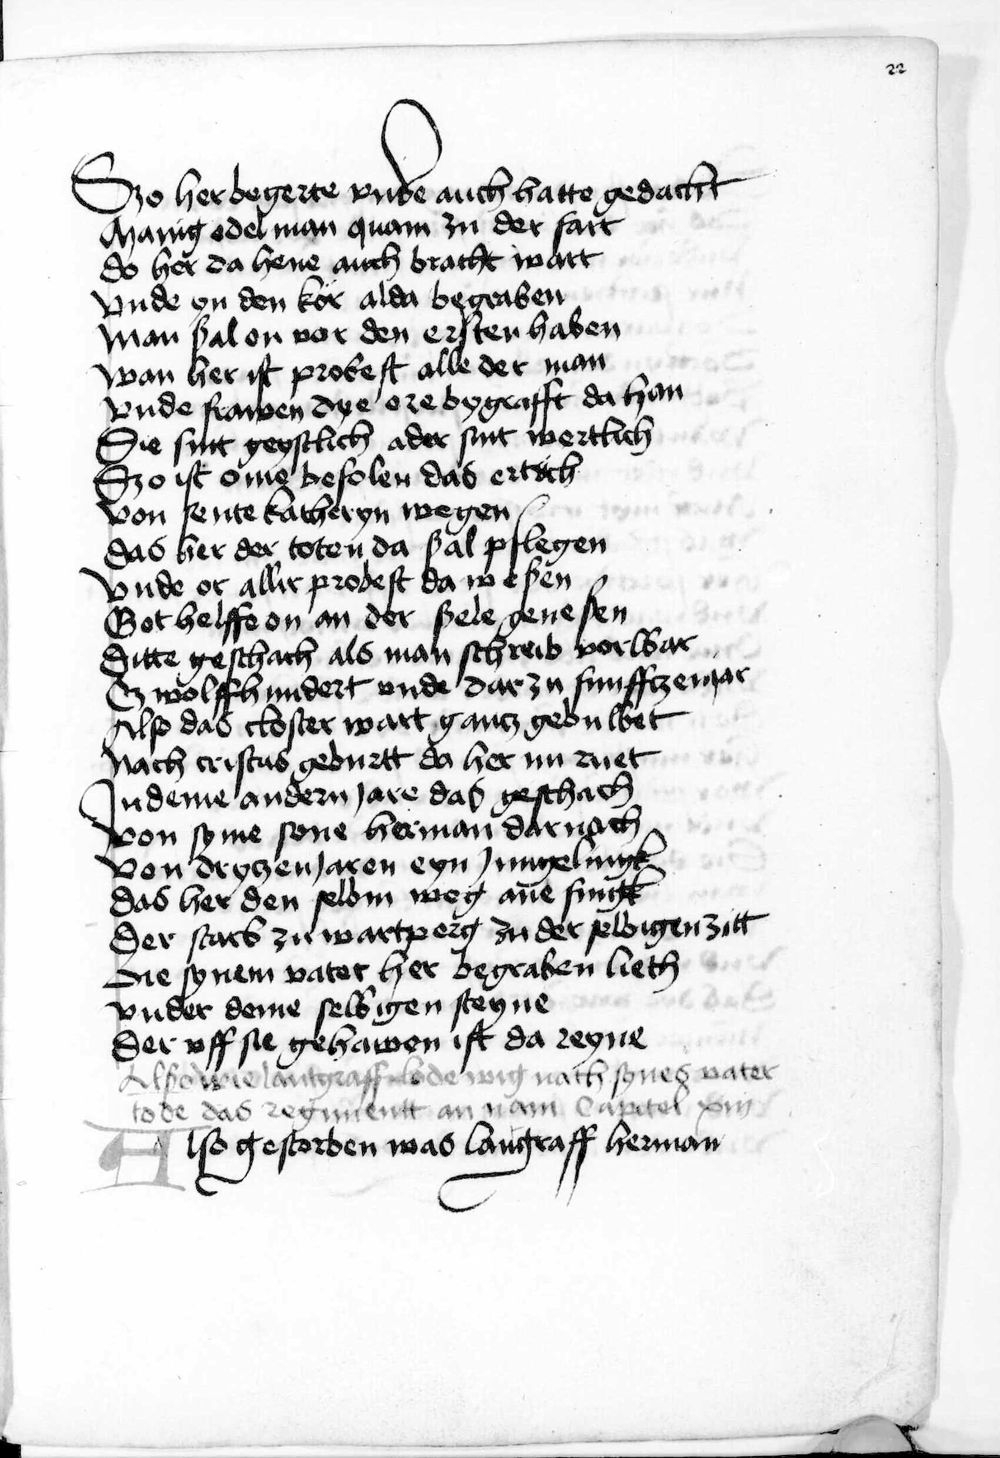 22
Szo her begerte vnde auch hatte gedacht
Manig edel man quam zu der fart
do her da hene auch bracht wart
vnde on den kor alda begraben
man sal on vor den ersten haben
wan her ist probest alle der man
vnde frawen dye ere bygrafft da han
Die sint geystlich ader sint wertlich
Szo ist ome befolen das ertich
von sente katheryn wegen
das her der toten da sal pflegen
vnde or allir probest da wesen
Got helffe on an der sele genesen
Ditte geschach als man schreib vorwar
Czwolffhundert vnde dar zu funfftzen jar
Also das closter wart gantz gebuwet
Nach cristus geburtt da her nu ruet
In deme andern jare das geschach
von syme sone herman darnach
von drytzen jaren eyn jungelingk
das her den selbin weg ane fingk
Der starb zu wartperg zu der selbigen zitt
Bie synem vater her begraben lieth
vnder deme selbigen steyne
Der vff sie gehawen ist da reyne
Also wie lantgraff lodewig nach synes vater
tode das regimentt an nam Capitel xiij
Also gestorben was langraff herman